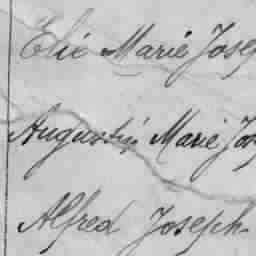 Elie Marie Josep
Augustin Marie Jos
Alfred Joseph